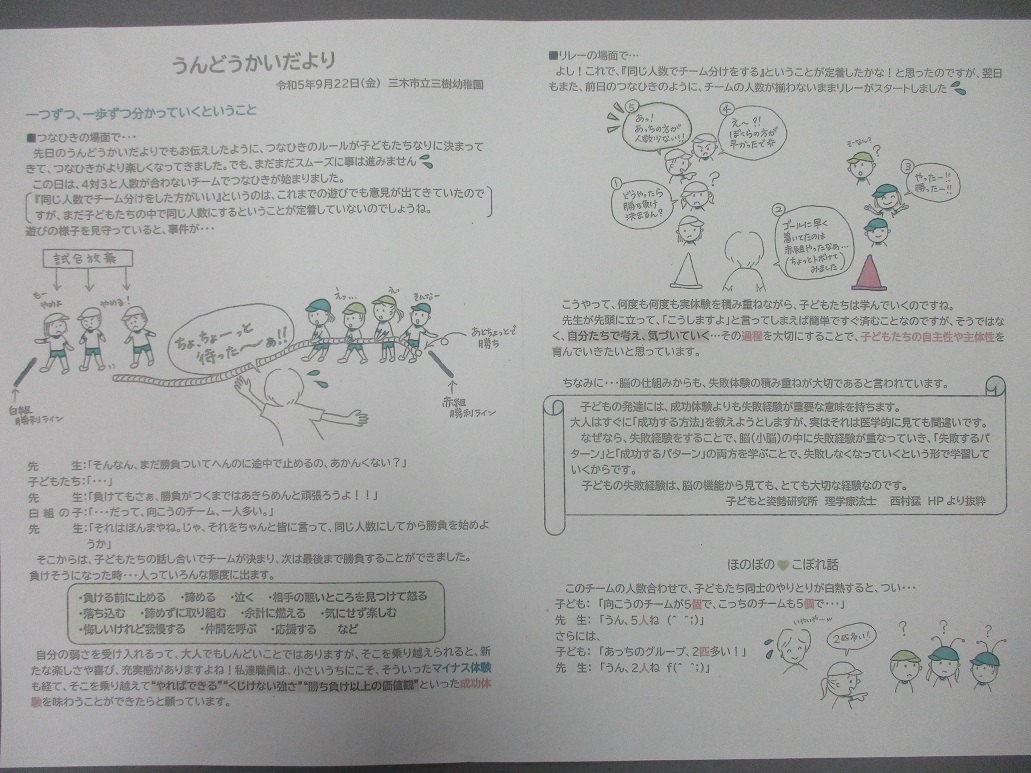 うんどうかいだより
令和5年9月22日(金)　三木市立三樹幼稚園
一つずつ、一歩ずつ分かっていくということ
■つなひきの場面で・・・
先日のうんどうかいだよりでもお伝えしたように、つなひきのルールが子どもたちなりに決まって
きて、つなひきがより楽しくなってきました。でも、まだまだスムーズに事は進みません
この日は、4対3と人数が合わないチームでつなひきが始まりました。
『同じ人数でチーム分けをした方がいい』というのは、これまでの遊びでも意見が出てきていたので
すが、まだ子どもたちの中で同じ人数にするということが定着していないのでしょうね。
遊びの様子を見守っていると、事件が・・・
試合放棄
もー
やめよ
やめる!
ちょ、ちょーっと
待ったーぁ!!
えっ…
えっ
そんなー
あとちょっとで
勝ち
白組
勝利ライン
赤組
勝利ライン
先　　生:「そんなん、まだ勝負ついてへんのに途中で止めるの、あかんくない?」
子どもたち:「・・・」
先　　生:「負けてもさぁ、勝負がつくまではあきらめんと頑張ろうよ!!」
白組の子:「・・・だって、向こうのチーム、一人多い。」
先　　生:「それはほんまやね。じゃ、それをちゃんと皆に言って、同じ人数にしてから勝負を始めよ
うか」
そこからは、子どもたちの話し合いでチームが決まり、次は最後まで勝負することができました。
負けそうになった時・・・人っていろんな態度に出ます。
・負ける前に止める　・諦める　・泣く　・相手の悪いところを見つけて怒る
・落ち込む　・諦めずに取り組む　・余計に燃える　・気にせず楽しむ
・悔しいけれど我慢する　・仲間を呼ぶ　・応援する　　など
自分の弱さを受け入れるって、大人でもしんどいことではありますが、そこを乗り越えられると、新
たな楽しさや喜び、充実感がありますよね!私達職員は、小さいうちにこそ、そういったマイナス体験
も経て、そこを乗り越えて"やればできる""くじけない強さ""勝ち負け以上の価値観"といった成功体
験を味わうことができたらと願っています。
■リレーの場面で・・・
よし!これで、『同じ人数でチーム分けをする』ということが定着したかな!と思ったのですが、翌日
もまた、前日のつなひきのように、チームの人数が揃わないままリレーがスタートしました
⑤
あっ!
あっちの方が
人数少ない!!
④
え～?!
ぼくらの方が
早かったで
そーなん?
③
やったー!!
勝ったー!!
①
どうやったら
勝ち負け
決まるん?
②
ゴールに早く
着いてたのは
赤組やったなぁ…
(ちょっとトボけて
みました)
こうやって、何度も何度も実体験を積み重ねながら、子どもたちは学んでいくのですね。
先生が先頭に立って、「こうしますよ」と言ってしまえば簡単ですぐ済むことなのですが、そうではな
く、自分たちで考え、気づいていく・・・その過程を大切にすることで、子どもたちの自主性や主体性を
育んでいきたいと思っています。
ちなみに・・・脳の仕組みからも、失敗体験の積み重ねが大切であると言われています。
子どもの発達には、成功体験よりも失敗経験が重要な意味を持ちます。
大人はすぐに「成功する方法」を教えようとしますが、実はそれは医学的に見ても間違いです。
なぜなら、失敗経験をすることで、脳(小脳)の中に失敗経験が重なっていき、「失敗するパ
ターン」と「成功するパターン」の両方を学ぶことで、失敗しなくなっていくという形で学習して
いくからです。
子どもの失敗経験は、脳の機能から見ても、とても大切な経験なのです。
子どもと姿勢研究所　理学療法士　西村猛　HPより抜粋
ほのぼの こぼれ話
このチームの人数合わせで、子どもたち同士のやりとりが白熱すると、つい・・・
子ども:「向こうのチームが5個で、こっちのチームも5個で・・・」
先　生:「うん、5人ね（^ ^;)」
さらには、
子ども:「あっちのグループ、2匹多い!」
先　生:「うん、2人ね f(^ ^;)」
いやいやーw
2匹多い!